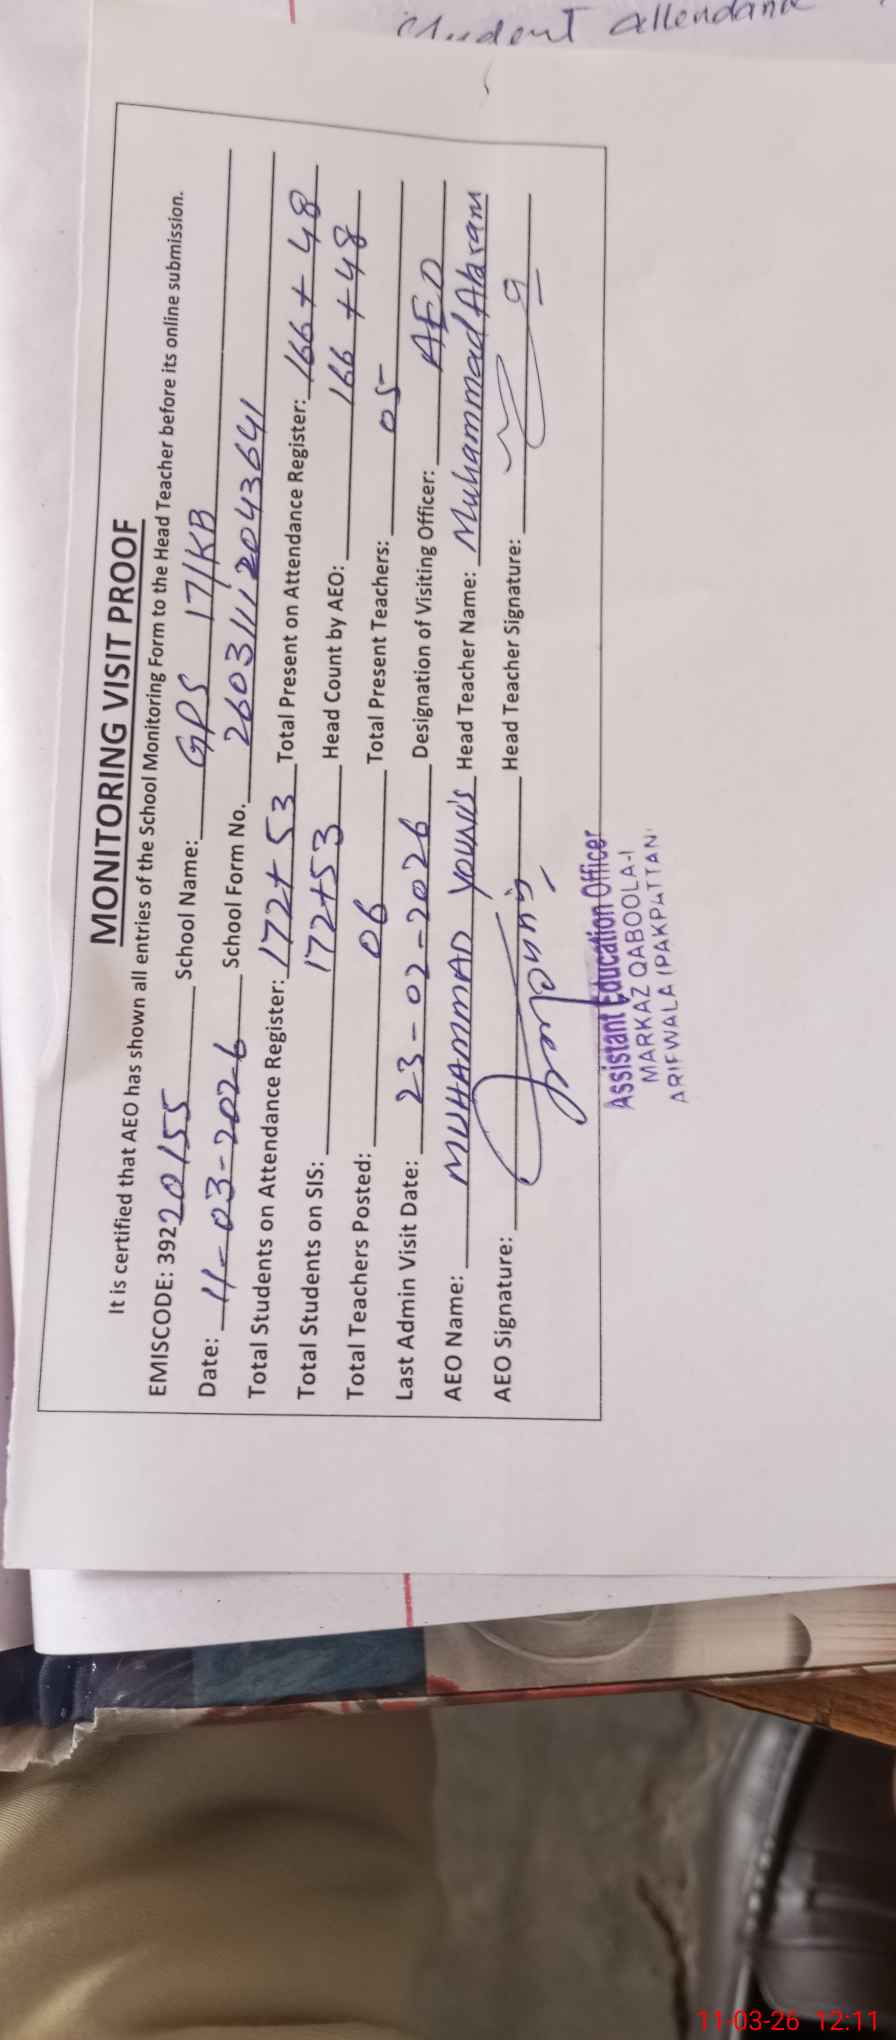 Student attendanc
MONITORING VISIT PROOF
It is certified that AEO has shown all entries of the School Monitoring Form to the Head Teacher before its online submission.
EMISCODE: 39220155 School Name: GPS 171/KB
Date: 11-03-2026 School Form No. 260311112043641
Total Students on Attendance Register: 172+53 Total Present on Attendance Register: 166+48
Total Students on SIS: 172+53 Head Count by AEO: 166+48
Total Teachers Posted: 06 Total Present Teachers: 05
Last Admin Visit Date: 23-02-2026 Designation of Visiting Officer: AEO
AEO Name: MUHAMMAD YOUNIS Head Teacher Name: Muhammad Akram
AEO Signature: Head Teacher Signature:
Assistant Education Officer
MARKAZ QABOOLA-I
ARIFWALA (PAKPATTAN)
11-03-26 12:11